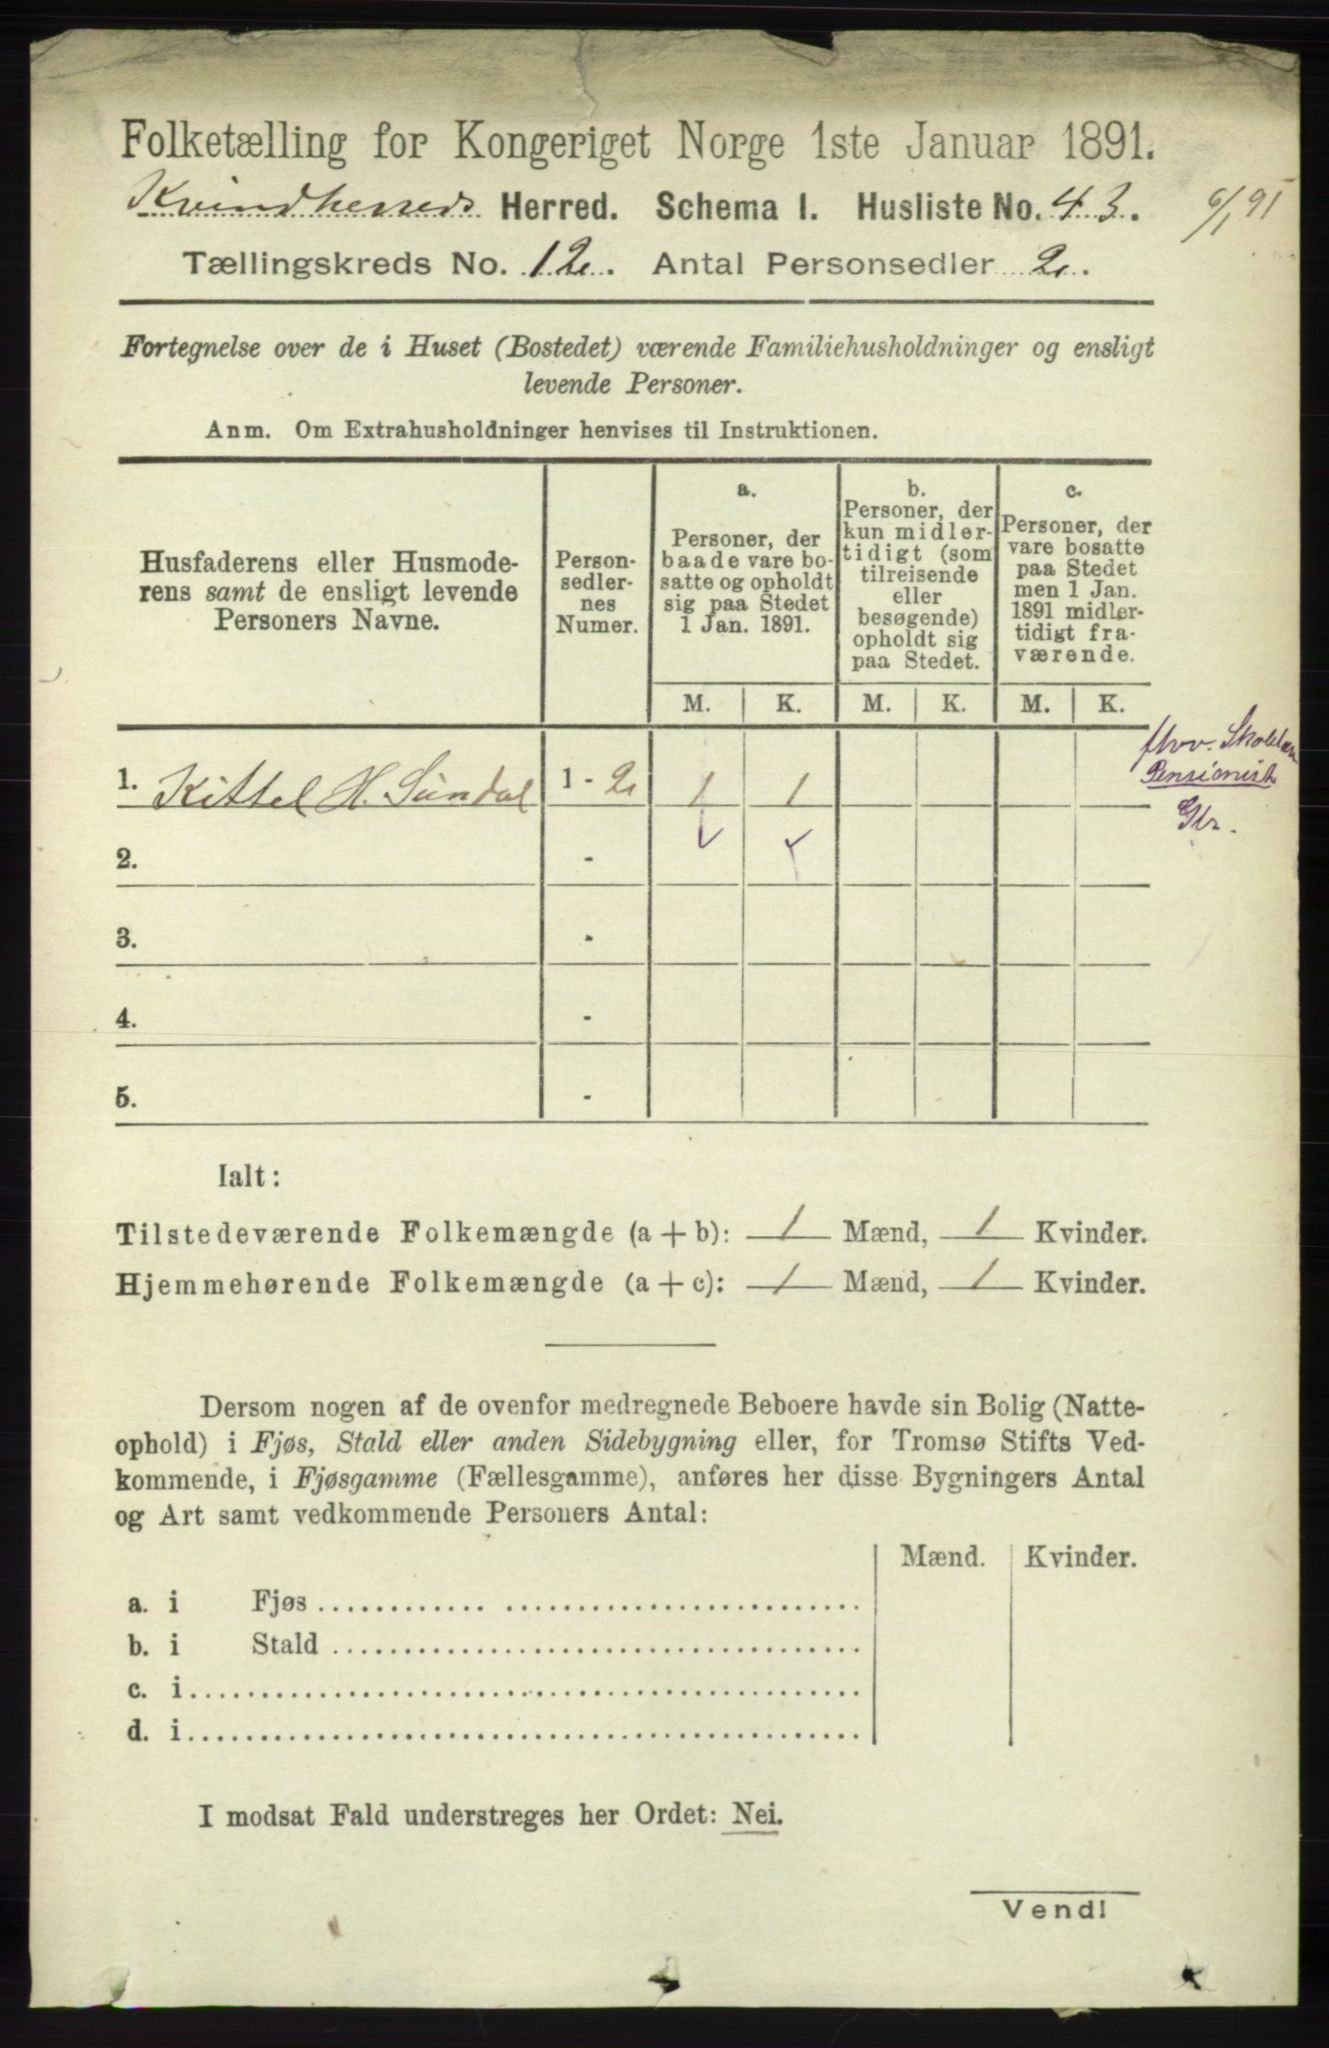 Folketælling for Kongeriget Norge 1ste Januar 1891.
Kvindherreds Herred. Schema I. Husliste No. 43. 6/1 91
Tællingskreds No. 12. Antal Personsedler 2.
Fortegnelse over de i Huset (Bostedet) værende Familiehusholdninger og ensligt
levende Personer.
Anm. Om Extrahusholdninger henvises til Instruktionen.
Husfaderens eller Husmode-
rens samt de ensligt levende
Personers Navne.
Person-
sedler-
nes
Numer.
a.
Personer, der
baade vare bo-
satte og opholdt
sig paa Stedet
1 Jan. 1891.
b.
Personer, der
kun midler-
tidigt (som
tilreisende
eller
besøgende)
opholdt sig
paa Stedet.
c.
Personer, der
vare bosatte
paa Stedet
men 1 Jan.
1891 midler-
tidigt fra-
værende.
M. K. M. K. M. K.
1. Kittel H. Sundal 1 - 2 1 1
Pensionist
2. -
3. -
4. -
5. -
Ialt:
Tilstedeværende Folkemængde (a + b): 1 Mænd, 1 Kvinder.
Hjemmehørende Folkemængde (a + c): 1 Mænd, 1 Kvinder.
Dersom nogen af de ovenfor medregnede Beboere havde sin Bolig (Natte-
ophold) i Fjøs, Stald eller anden Sidebygning eller, for Tromsø Stifts Ved-
kommende, i Fjøsgamme (Fællesgamme), anføres her disse Bygningers Antal
og Art samt vedkommende Personers Antal:
Mænd. Kvinder.
a. i Fjøs
b. i Stald
c. i
d. i
I modsat Fald understreges her Ordet: Nei.
Vend!